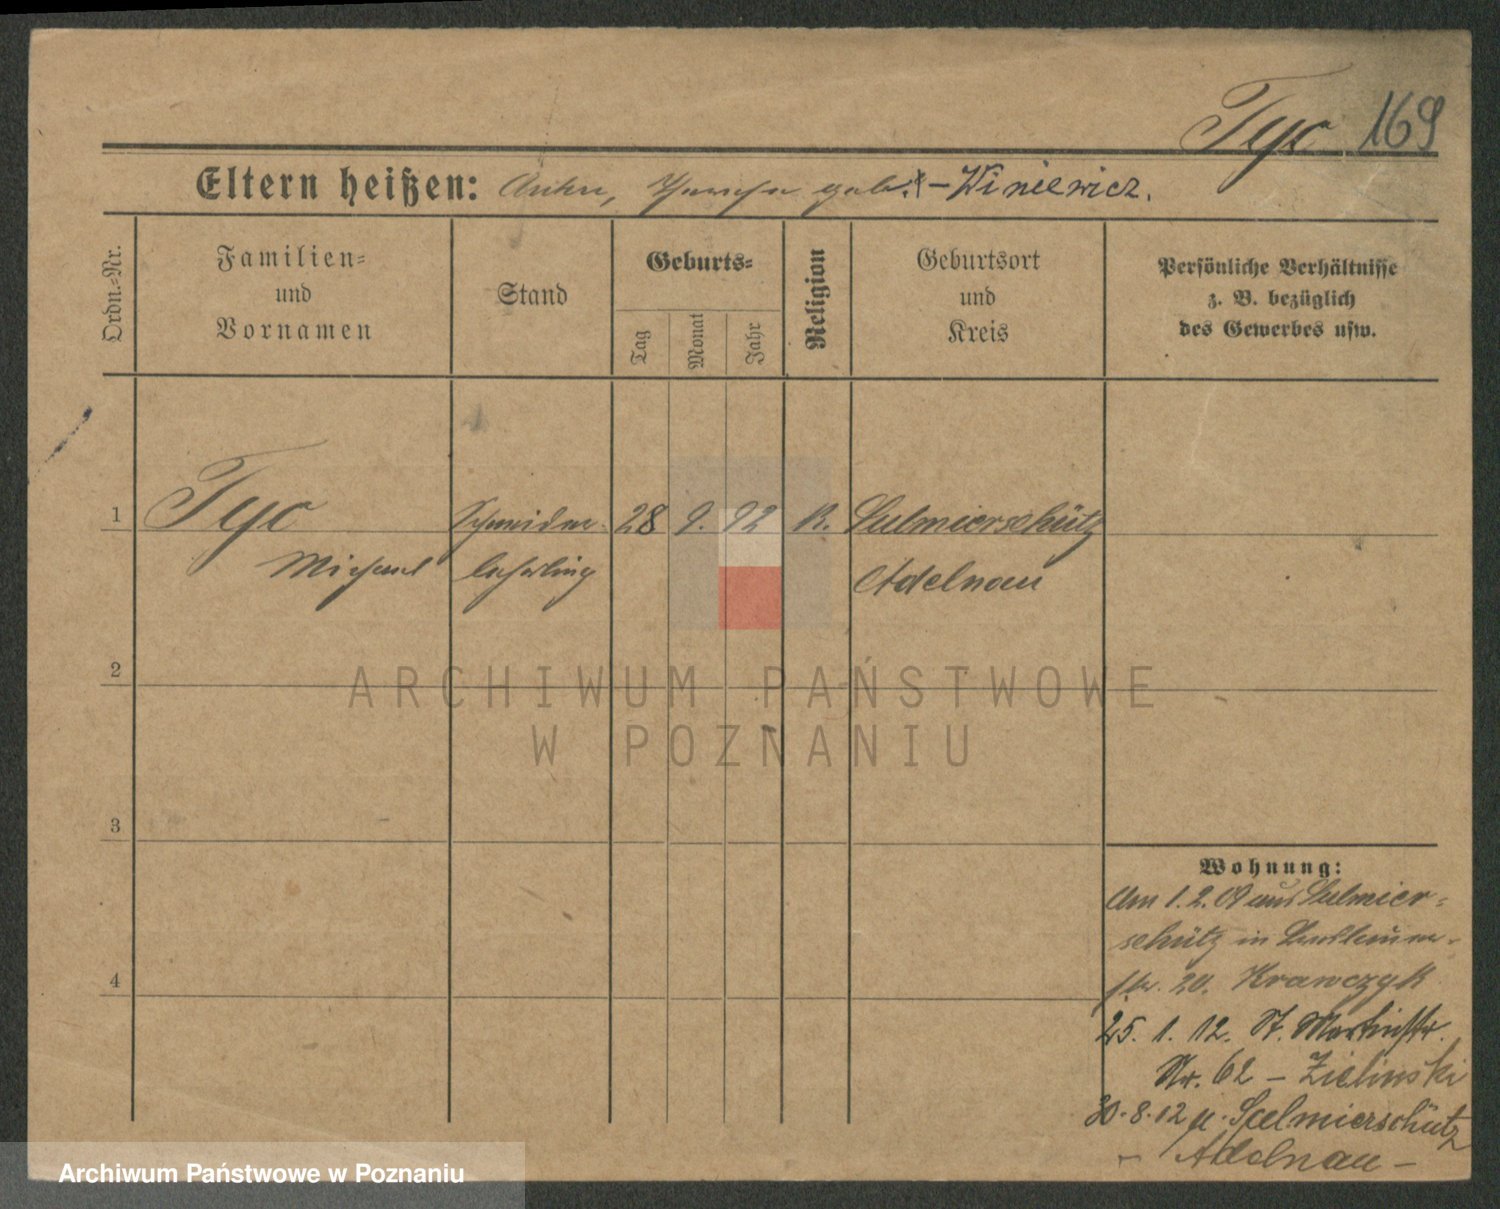 Tyc 169
Eltern heißen: geb. – Winiewicz.
Ordn.-Nr.
Familien-
und
Vornamen
Stand
Geburts-
Tag
Monat
Jahr
Religion
Geburtsort
und
Kreis
Persönliche Verhältnisse
z. B. bezüglich
des Gewerbes usw.
1 Tyc Schneider 28 9. 92 K. Sulmierschütz
Michael lehrling Adelnau
2
3
4
Wohnung:
Am 1. 2. 09 aus Sulmier-
schütz in
str. 20. Krawczyk
25. 1. 12. St. Martinstr.
Nr. 62 – Zielinski
30. 8. 12 n. Sulmierschütz
– Adelnau –
ARCHIWUM PAŃSTWOWE
W POZNANIU
Archiwum Państwowe w Poznaniu